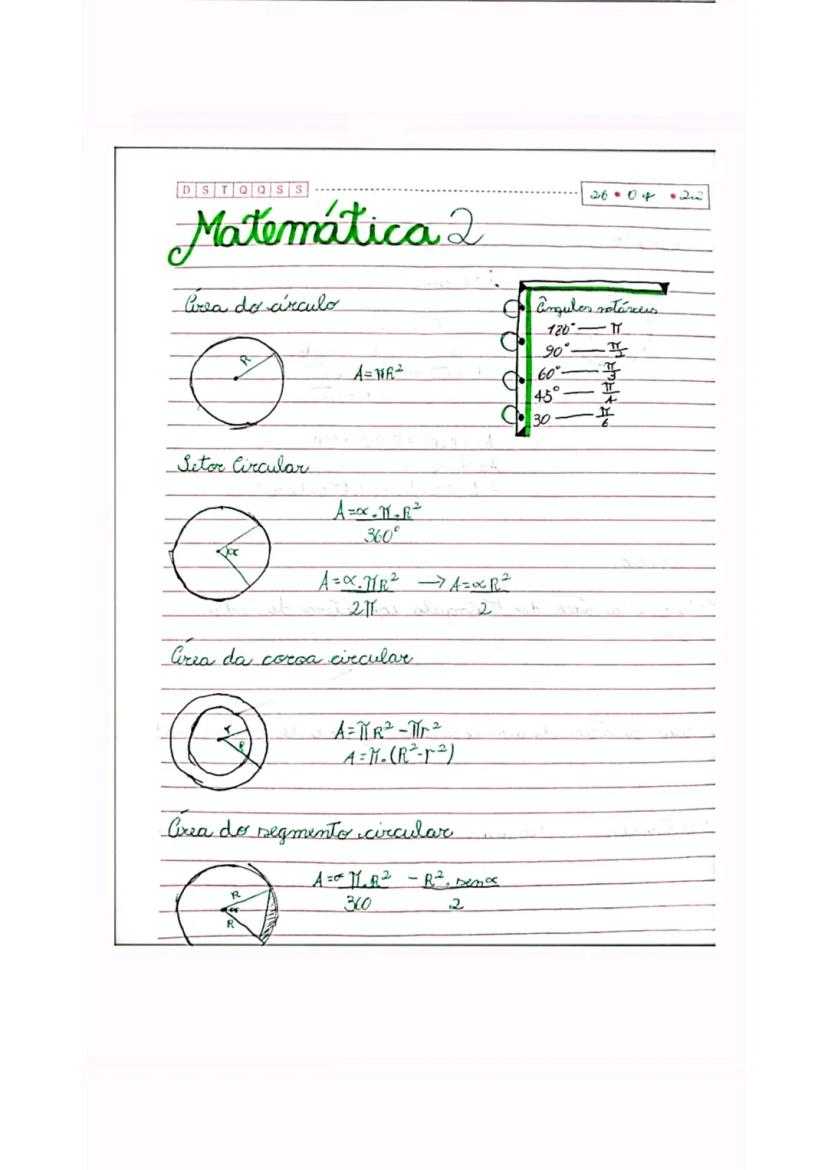 D S T Q Q S S
26 • 04 • 22
Matemática 2
Área do círculo
Ângulos notáveis
180° — π
90° — π/2
60° — π/3
45° — π/4
30 — π/6
R
A=πR²
Setor Circular
A=α.π.R²/360°
α
A=α.πR²/2π → A=αR²/2
Área da coroa circular
r
R
A=πR²-πr²
A=π.(R²-r²)
Área do segmento circular
A=απ.R²/360 - R².senα/2
R
α
R